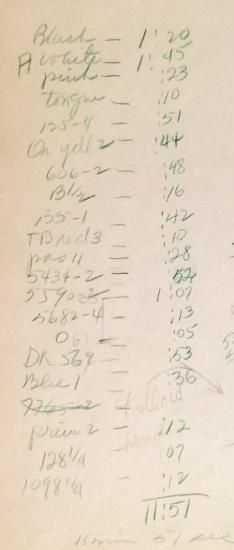 Black — 1:20
A White — 1:45
pink — :23
tongue — :10
125-4 — :51
On yell 2 — :44
606-2 — :48
B1/2 — :16
135-1 — :42
TD red 3 — :10
pas 11 — :28
5434-2 — :52
5590-2 — 1:07
5682-4 — :13
061 — :05
DK 569 — :53
Blue 1 — :36
9765-2
prim 2 — :12
128 1/4 — :07
1098 1/4 — :12
11:51
11 min 51 sec